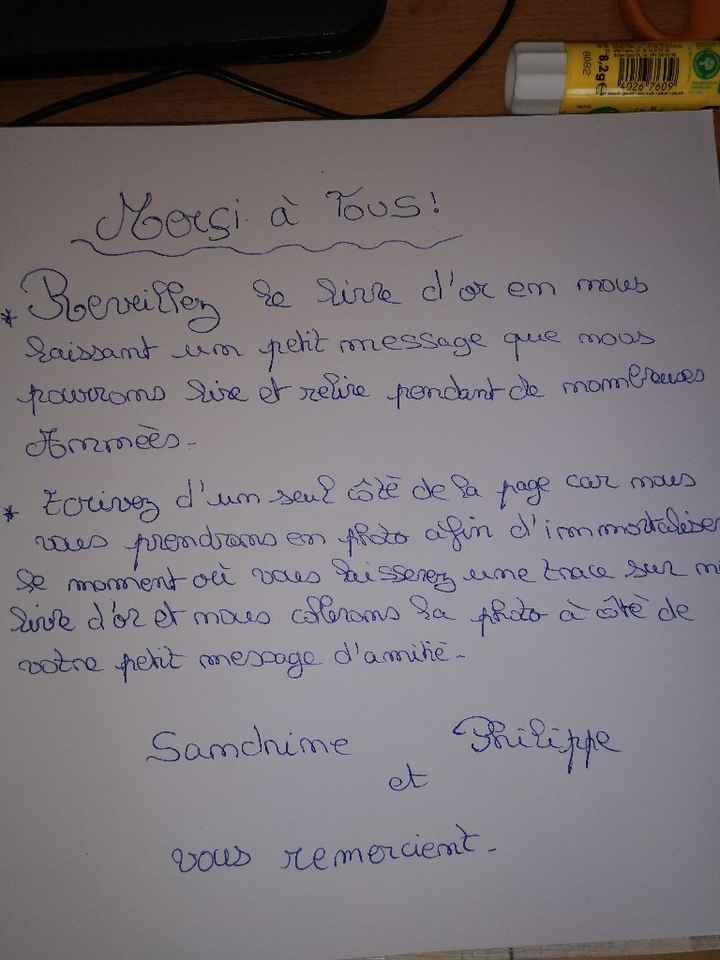 8,2g e
8082
4026 7609
Merçi à Tous!
* Reveillez le livre d'or en nous
laissant un petit message que nous
pourrons lire et relire pendant de nombreuses
Années.
* Ecrivez d'un seul côté de la page car nous
vous prendrons en photo afin d'immortaliser
le moment où vous laisserez une trace sur n
livre d'or et nous collerons la photo à côté de
votre petit message d'amitié.
Sandrine Philippe
et
vous remercient.